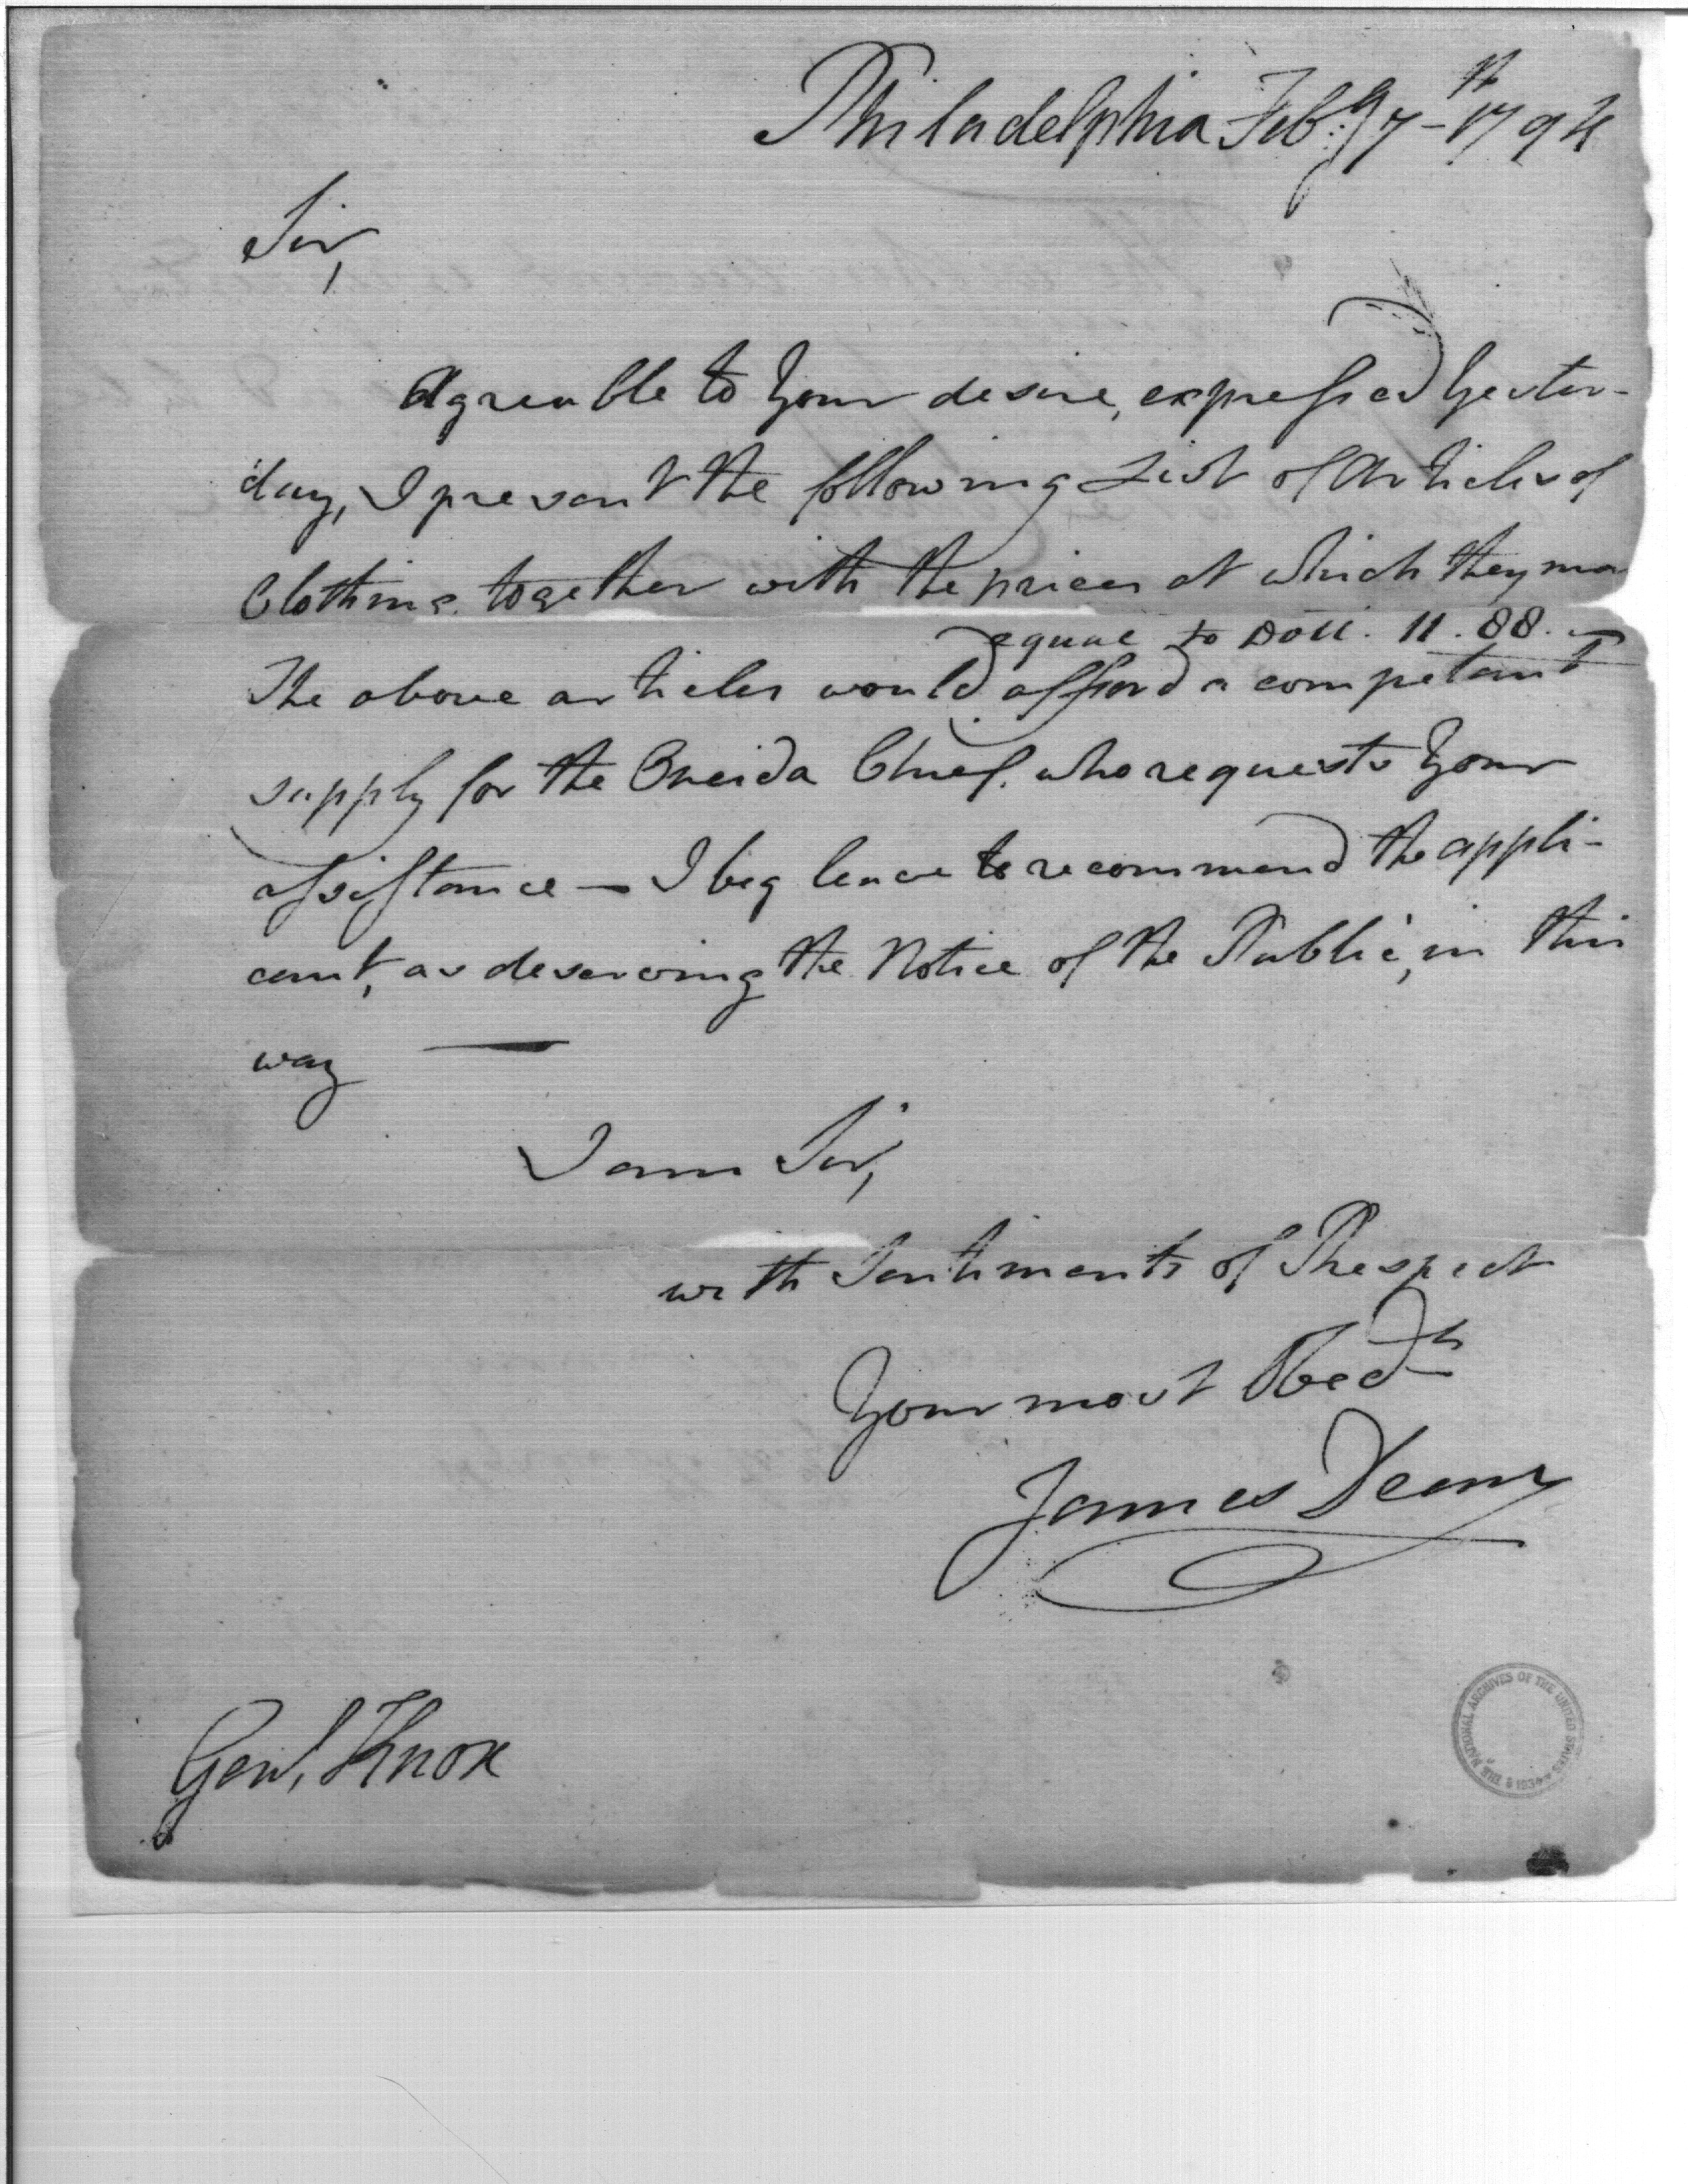 Philadelphia Feb:ry 7th 1794
Sir,
Agreable to your desire, expressed yester-
day, I present the following List of Articles of
Clothing together with the prices at which they ma
equal to Doll. 11.88.
The above articles would afford a competant
supply for the Oneida Chief, who requests your
assistance — I beg leave to recommend the appli-
cant, as deserving the Notice of the Public, in this
way —
I am Sir,
with Sentiments of Respect
Your most Obedt
James Dean
Genl. Knox
THE NATIONAL ARCHIVES OF THE UNITED STATES 1934